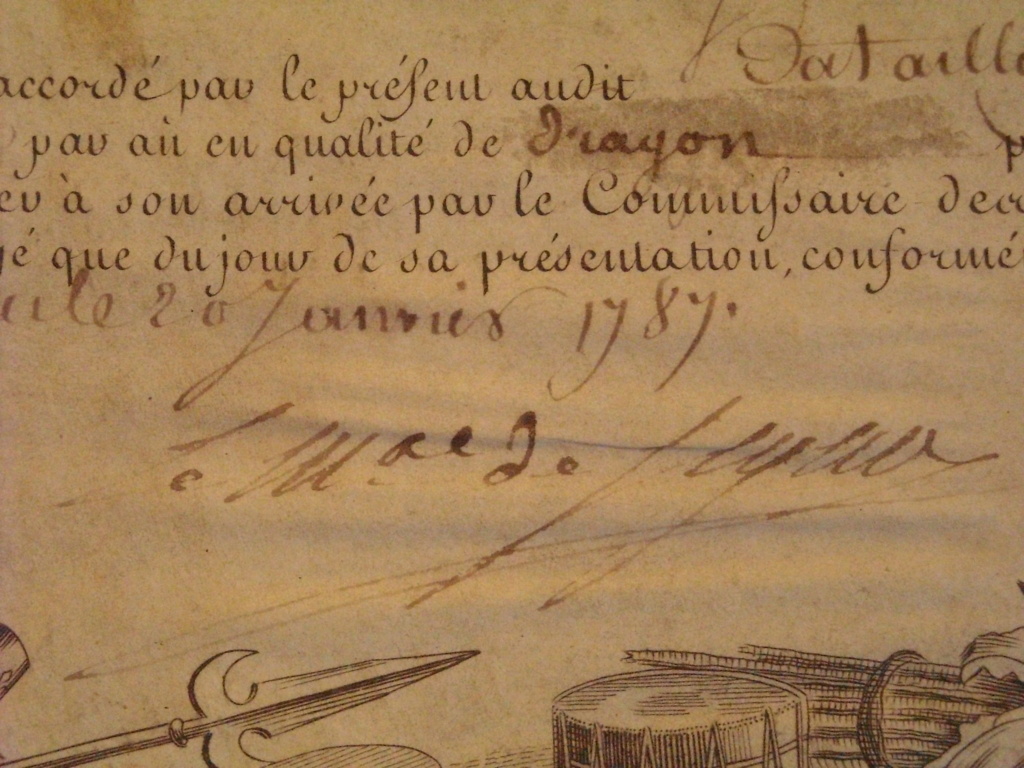 Bataill
accordé par le préſent audit
par an en qualité de Dragon
er à son arrivée par le Commiſsaire
é que du jour de sa présentation, conformé
le 20 Janvier 1787.
Le Mal de Segur